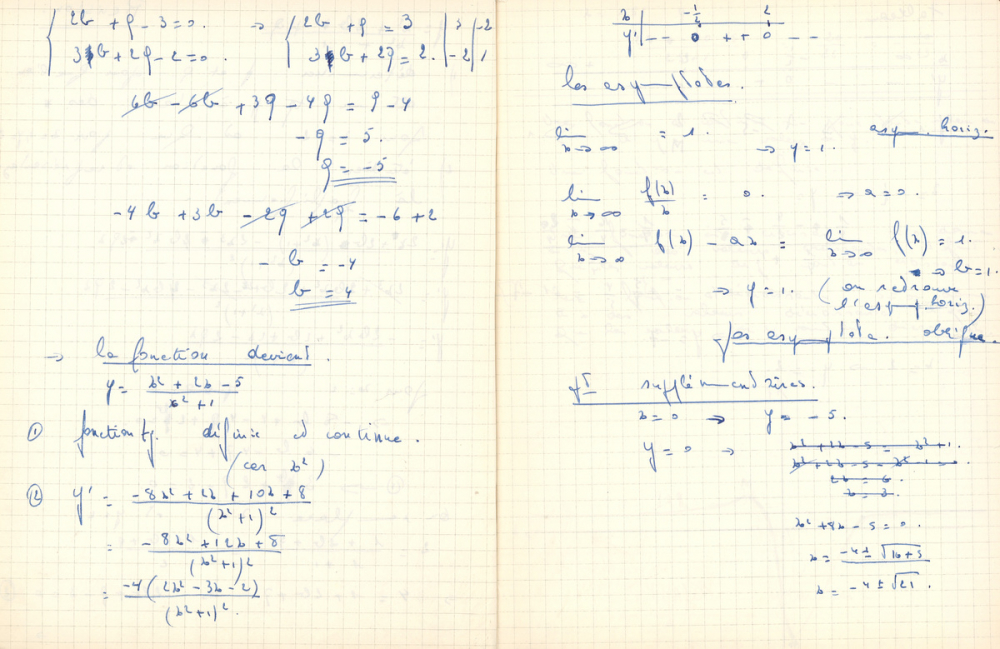 2b + q - 3 = 0. → 2b + q = 3 | 3 | -2
3b + 2q - 2 = 0. 3b + 2q = 2. | -2 | 1
6b - 6b + 3q - 4q = 9 - 4
- q = 5.
q = -5
-4b + 3b - 2q + 2q = -6 + 2
- b = -4
b = 4
→ la fonction devient.
y = (x² + 2x - 5)/(x² + 1)
① fonction tj. définie et continue.
(car x²)
② y' = (-8x² + 2x + 10x + 8)/(x² + 1)²
= (-8x² + 12x + 8)/(x² + 1)²
= -4(2x² - 3x - 2)/(x² + 1)².
x | -1/2 2
y' | - - 0 + + 0 - -
les asymptotes.
lim x→∞ = 1. → y = 1. asympt. horiz.
lim x→∞ f(x)/x = 0. → a = 0.
lim x→∞ f(x) - ax = lim x→∞ f(x) = 1.
→ b = 1.
→ y = 1. (on retrouve
l'asympt. horiz.)
pas asymptote. oblique.
pts supplémentaires.
x = 0 → y = -5.
y = 0 → x² + 2x - 5 = x² + 1.
x² + 2x - 5 - x² - 1 = 0.
2x = 6.
x = 3.
x² + 8x - 5 = 0.
x = -4 ± √16+5
x = -4 ± √21.